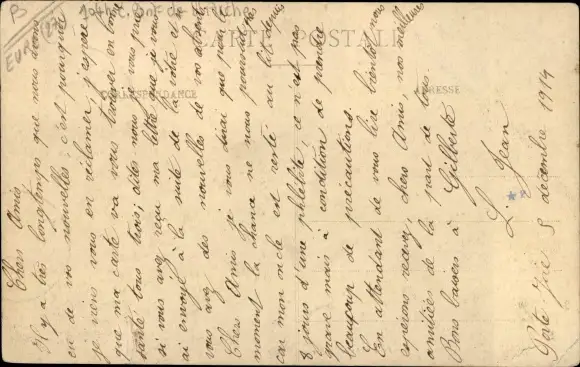 B
(27)
EUR
CARTE POSTALE
CORRESPONDANCE
ADRESSE
Porte Joie 5 décembre 1914
Chers Amis
Il y a très longtemps que nous avons
eu de vos nouvelles, c'est pourquoi
je viens vous en réclamer, j'espère
que ma carte va vous trouver en bonne
santé tous trois; dites nous je vous prie
si vous avez reçu ma lettre que je vous
ai envoyé à la suite de la vôtre et si
vous avez des nouvelles de vos absents
Chers Amis je vous dirai que pour le
moment la chance ne nous poursuit pas
car mon oncle est resté au lit depuis
8 jours d'une phlébite, ce n'est pas
grave mais à condition de prendre
beaucoup de précautions
En attendant de vous lire bientôt nous
espérons recevez, chers Amis, nos meilleures
amitiées de la part de tous.
Bons baisers à Gilberte
L. Jean